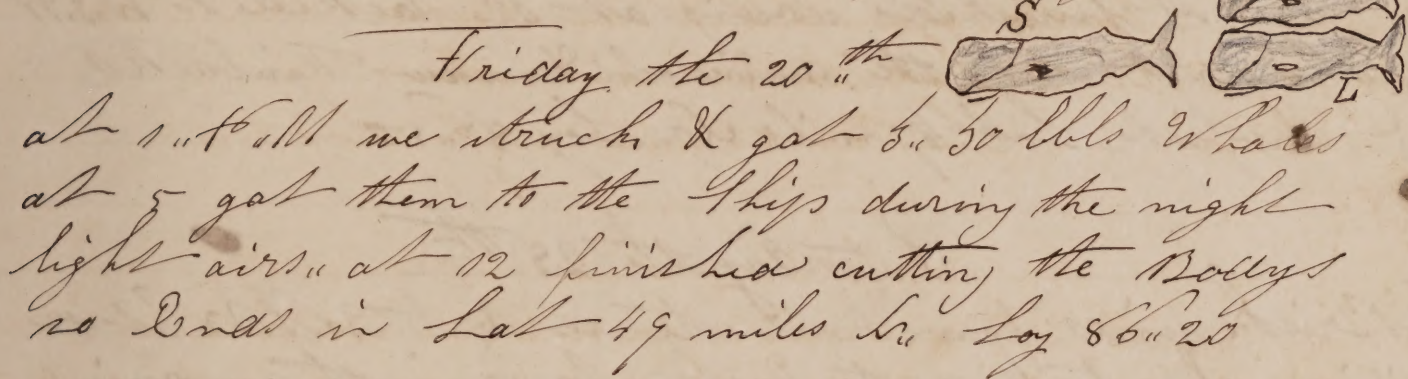 S
Friday the 20"th
L
at 1" P"M we struck & got 3" 30 bbls Whales
at 5 got them to the Ship during the night
light airs" at 12 finished cutting the Bodys
so Ends in Lat 49 miles Lo 86"20